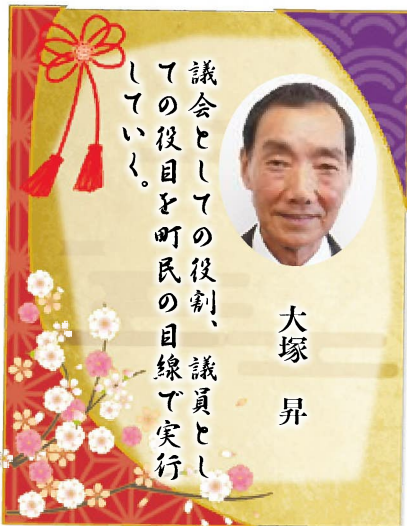 議会としての役割、議員とし
ての役目を町民の目線で実行
していく。
大塚 昇